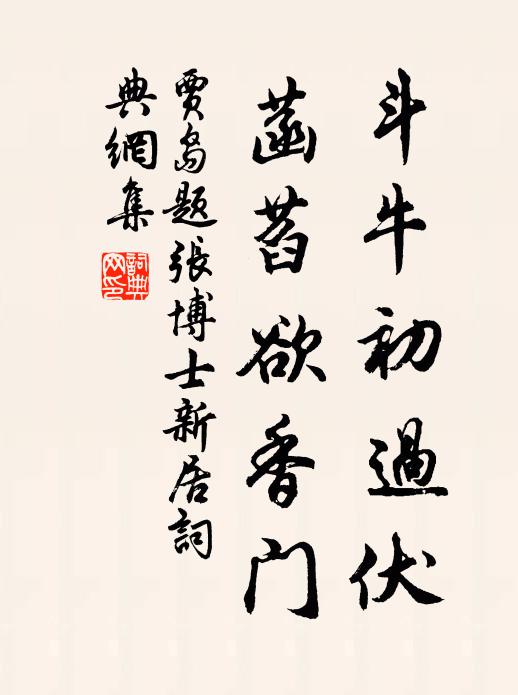 斗牛初過伏
菡萏欲香門
賈島題張博士新居詞
典網集
詞典
网印